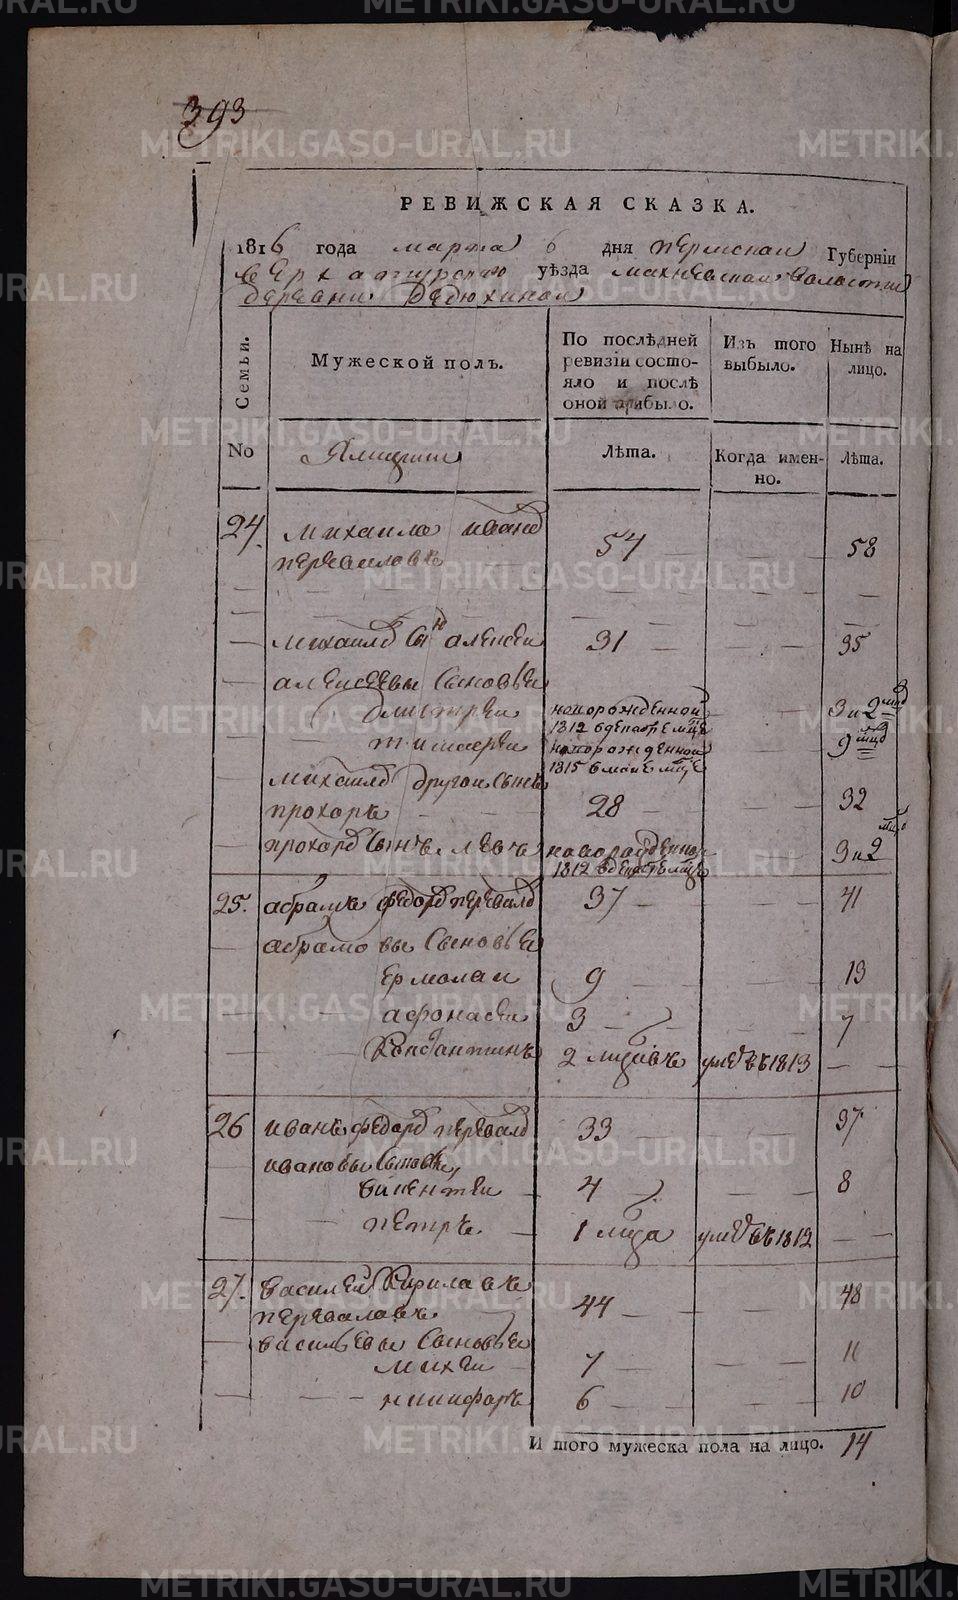 393
РЕВИЖСКАЯ СКАЗКА.
1816 года марта 6 дня пермской Губерніи
верхатурского уѣзда махневской валости
деревни Дедюхиной
Семьи. Мужеской полъ. По послѣдней ревизіи состояло и послѣ оной прибыло. Изъ того выбыло. Нынѣ на лицо.
No Ямщики Лѣта. Когда именно. Лѣта.
24. михаило иванов
переваловъ 54 58
михаилов сын алексеи 31 35
алексеевы сыновьи
дмитреи новорожденной 3 и 2 мцов
1812 в декабре мце
тимофеи новорожденной 9 мцов
1815 в маие мце
михаилов другои сынъ
прохоръ 28 32
прохоров сынъ левъ новорожденной 3 и 2 мцо
1812 в декабре мце
25. абрамъ федоров перевалов 37 41
абрамовы сыновьи
ермолаи 9 13
афонасеи 3 7
константинъ 2 мцовъ умре въ 1813
26 иванъ федоров перевалов 33 37
ивановы сыновьи
викентеи 4 8
петръ 1 мца умре въ 1812
27. василеи кириловъ
переваловъ 44 48
васильевы сыновьи
михеи 7 11
никифаръ 6 10
И того мужеска пола на лицо. 14
METRIKI.GASO-URAL.RU